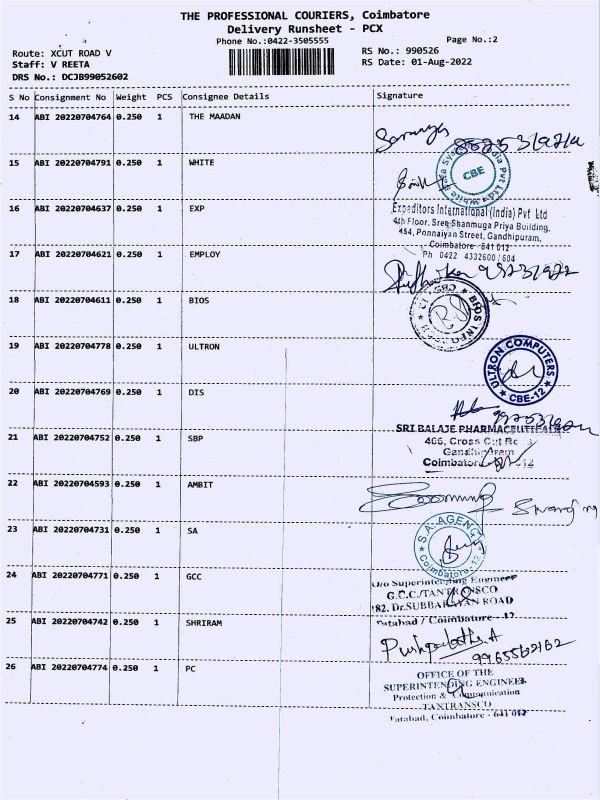 THE PROFESSIONAL COURIERS, Coimbatore
Delivery Runsheet - PCX
Phone No.:0422-3505555
Page No.:2
Route: XCUT ROAD V
RS No.: 990526
Staff: V REETA
RS Date: 01-Aug-2022
DRS No.: DCJB99052602
S No Consignment No Weight PCS Consignee Details Signature
14 ABI 20220704764 0.250 1 THE MAADAN
15 ABI 20220704791 0.250 1 WHITE
CBE
16 ABI 20220704637 0.250 1 EXP
Expeditors International (India) Pvt Ltd
4th Floor, Sree Shanmuga Priya Building,
454, Ponnaiyan Street, Gandhipuram,
Coimbatore 641 012
Ph 0422 4332600 / 604
17 ABI 20220704621 0.250 1 EMPLOY
18 ABI 20220704611 0.250 1 BIOS
19 ABI 20220704778 0.250 1 ULTRON
ULTRON COMPUTERS
CBE-12
20 ABI 20220704769 0.250 1 DIS
21 ABI 20220704752 0.250 1 SBP
SRI BALAJE PHARMACEUTICALS
466, Cross Cut
Gandhipuram
22 ABI 20220704593 0.250 1 AMBIT
23 ABI 20220704731 0.250 1 SA
S.A. AGENCY
Coimbatore-12
24 ABI 20220704771 0.250 1 GCC
O/o Superintending Engineer
G.C.C/TANTRANSCO
182, Dr.SUBBARAYAN ROAD
Tatabad / Coimbatore - 12
25 ABI 20220704742 0.250 1 SHRIRAM
Pushpalatha.A
26 ABI 20220704774 0.250 1 PC
OFFICE OF THE
SUPERINTENDING ENGINEER
Protection & Communication
TANTRANSCO
Tatabad, Coimbatore - 641 012